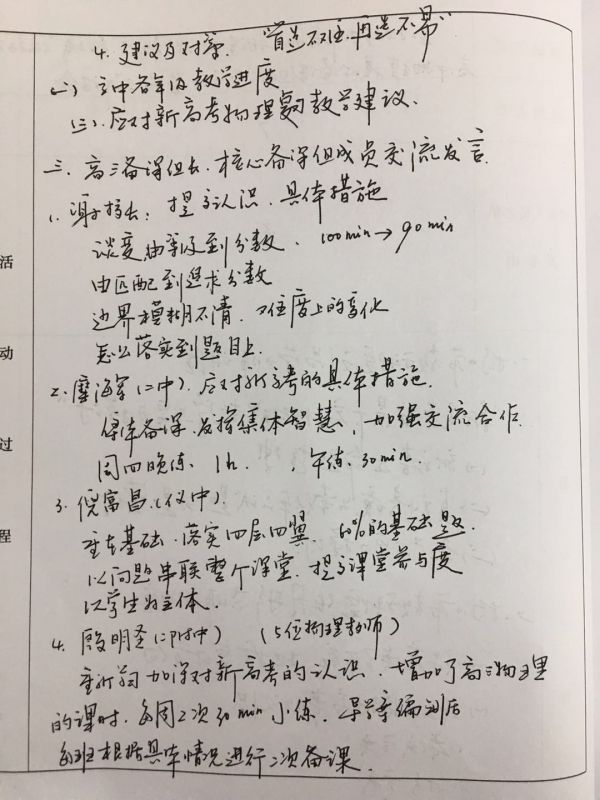 4. 建议及对策. "首选不佳. 再选不易"
(二) 高中各年级教学进度
(三). 应对新高考物理复习教学建议.
三. 高三备课组长. 核心备课组成员交流发言.
1. 校长: 提高认识. 具体措施
谈变由等级到分数. 100min → 90min
由匹配到追求分数
边界模糊不清. 难度上的变化
怎么落实到题目上.
2. 海军(二中). 应对新高考的具体措施.
集体备课. 发挥集体智慧, 加强交流合作.
周四晚练. 1h. , 午练. 30min.
3. 倪富昌. (仪中).
重在基础. 落实四层四翼. 60%的基础题.
以问题串联整个课堂. 提高课堂参与度
以学生为主体.
4. 殷明圣(二附中) (5位物理教师)
重新学习 加深对新高考的认识. 增加了高三物理
的课时. 每周2次30min小练. 导学案编制后
每班根据具体情况进行二次备课.
活
动
过
程